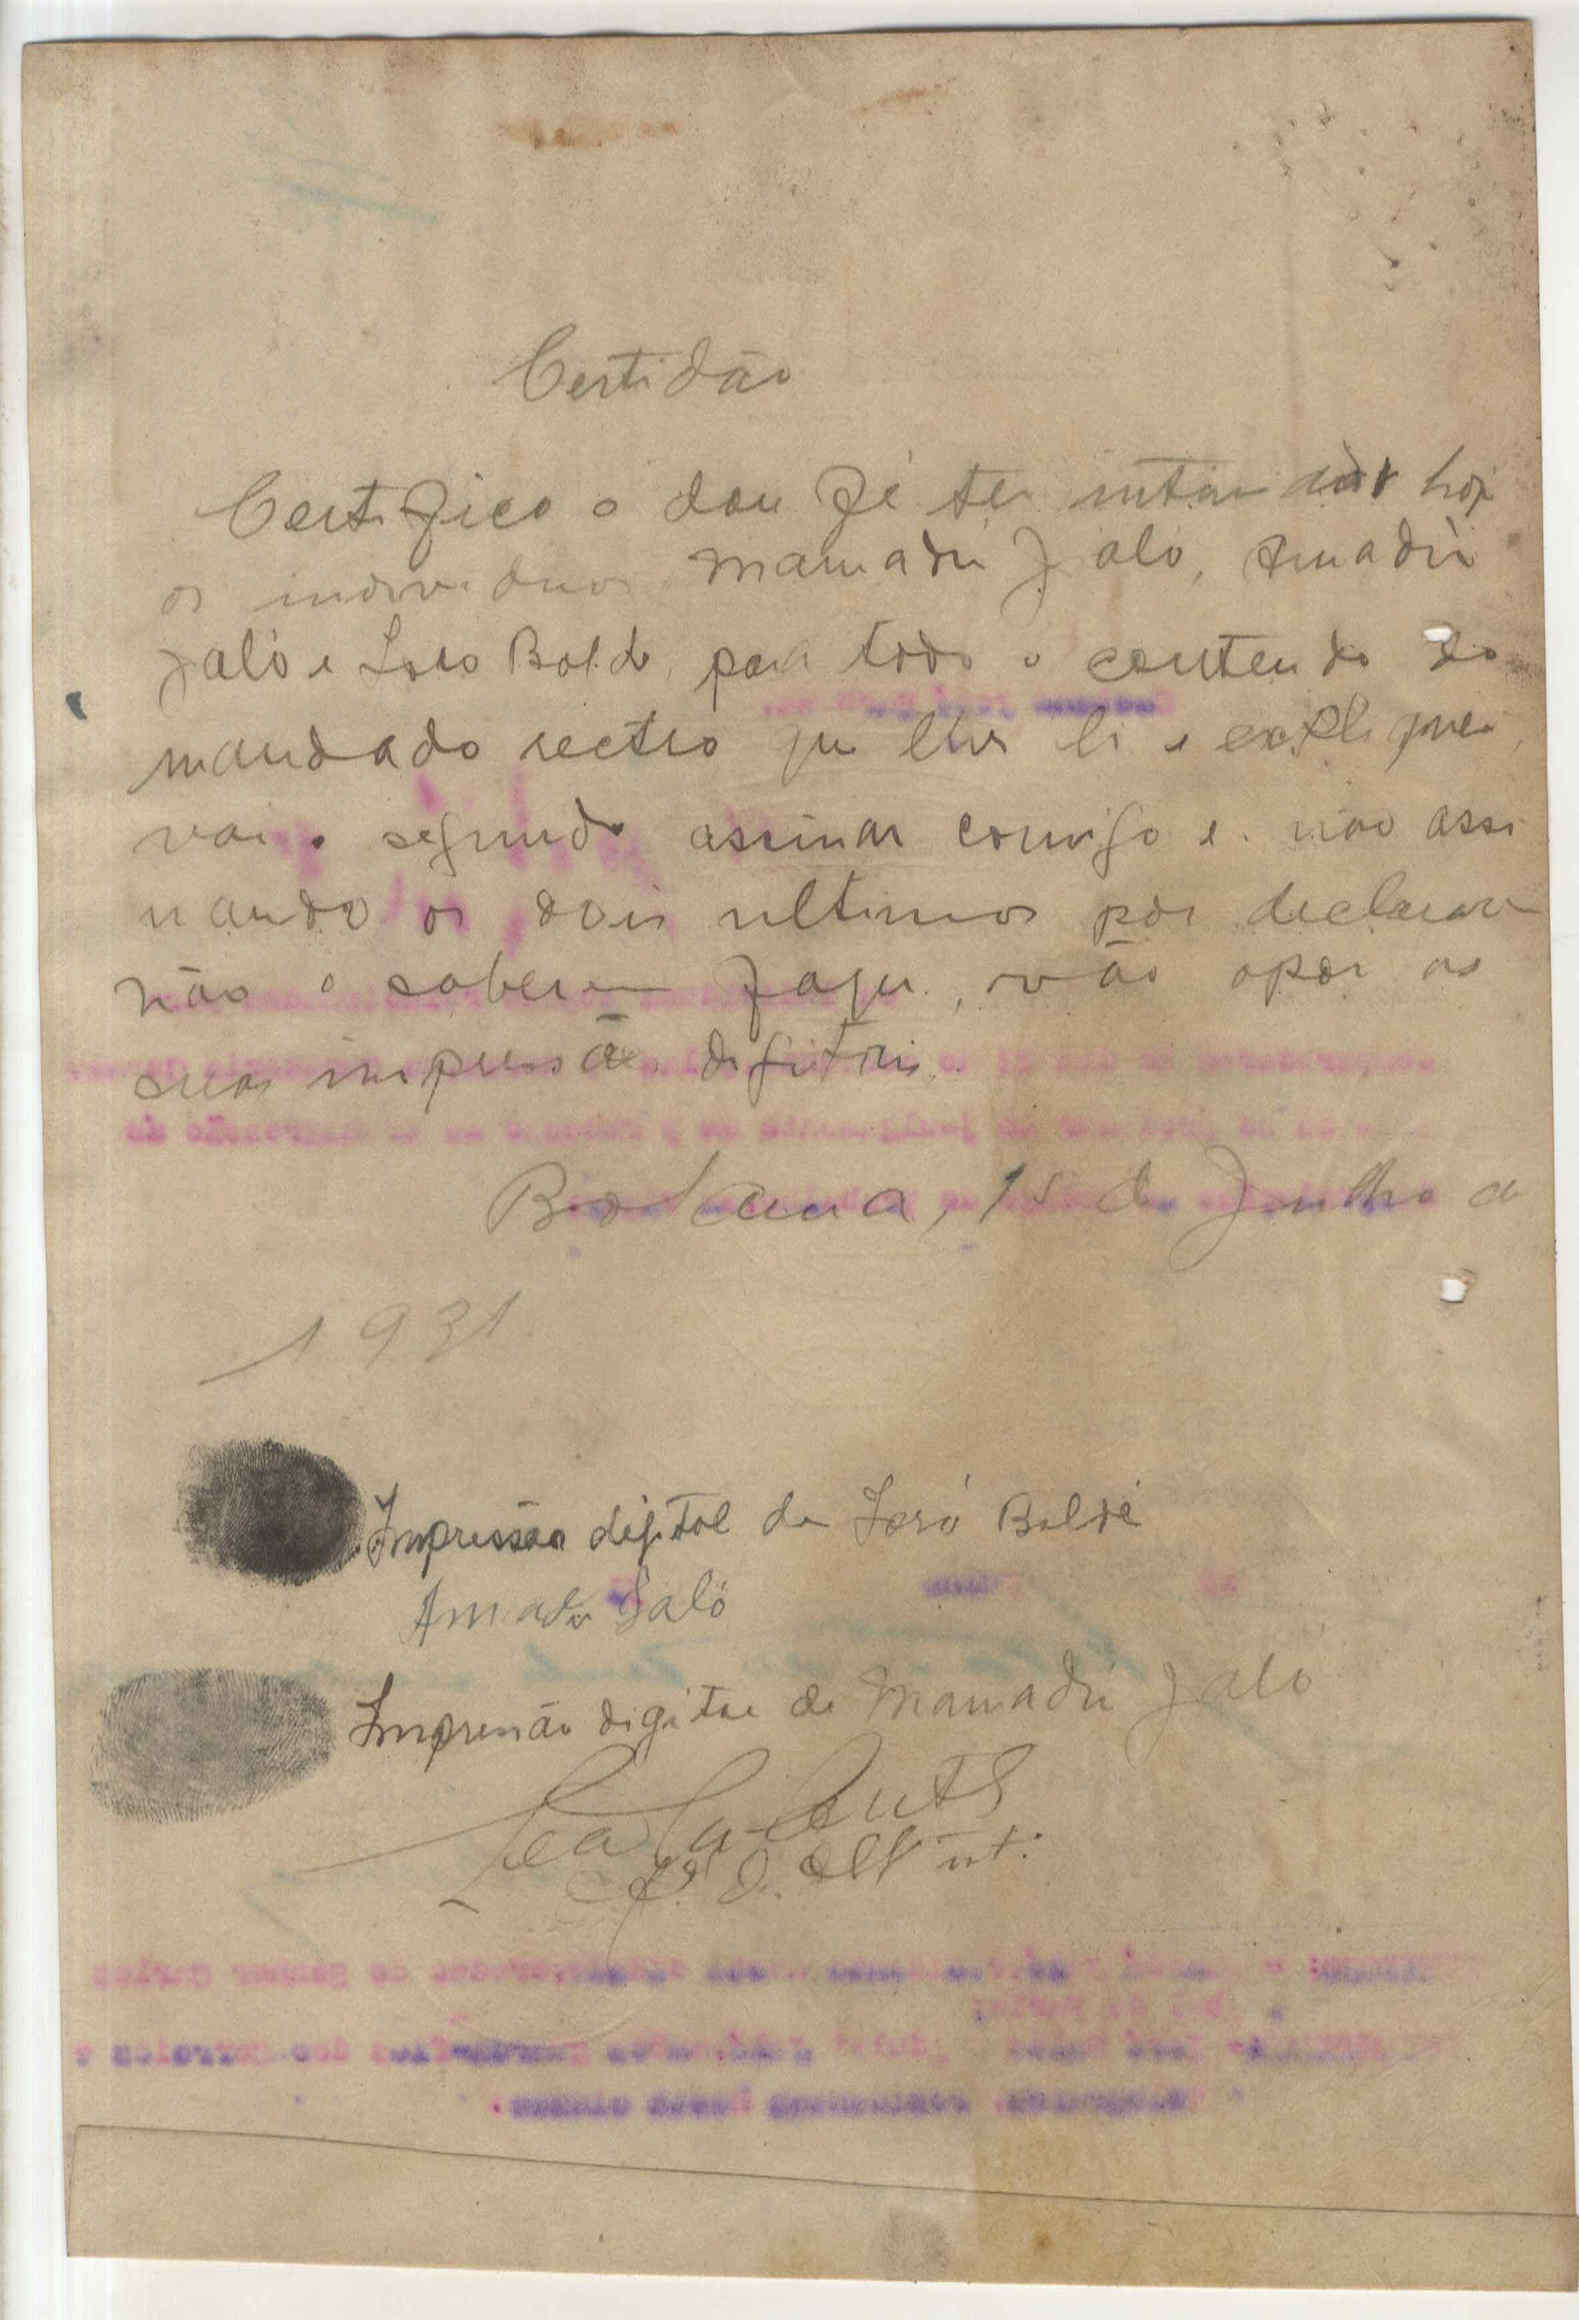 Certidão
Certifico e dou fé ter intimado hoje
os individuos Mamadú Jaló, Amadú
Jaló e Soro Baldé, para todo o conteudo do
mandado rectro que lhes li e expliquei,
vai o segundo assinar comigo e não assi
nando os dois ultimos por declararem
não o saberem fazer, vão opôr as
suas impressões digitais.
Bolama, 15 de Julho de
1931
Impressão digital de Soró Baldé
Amadu Jaló
Impressão digital de Mamadú Jaló
int.